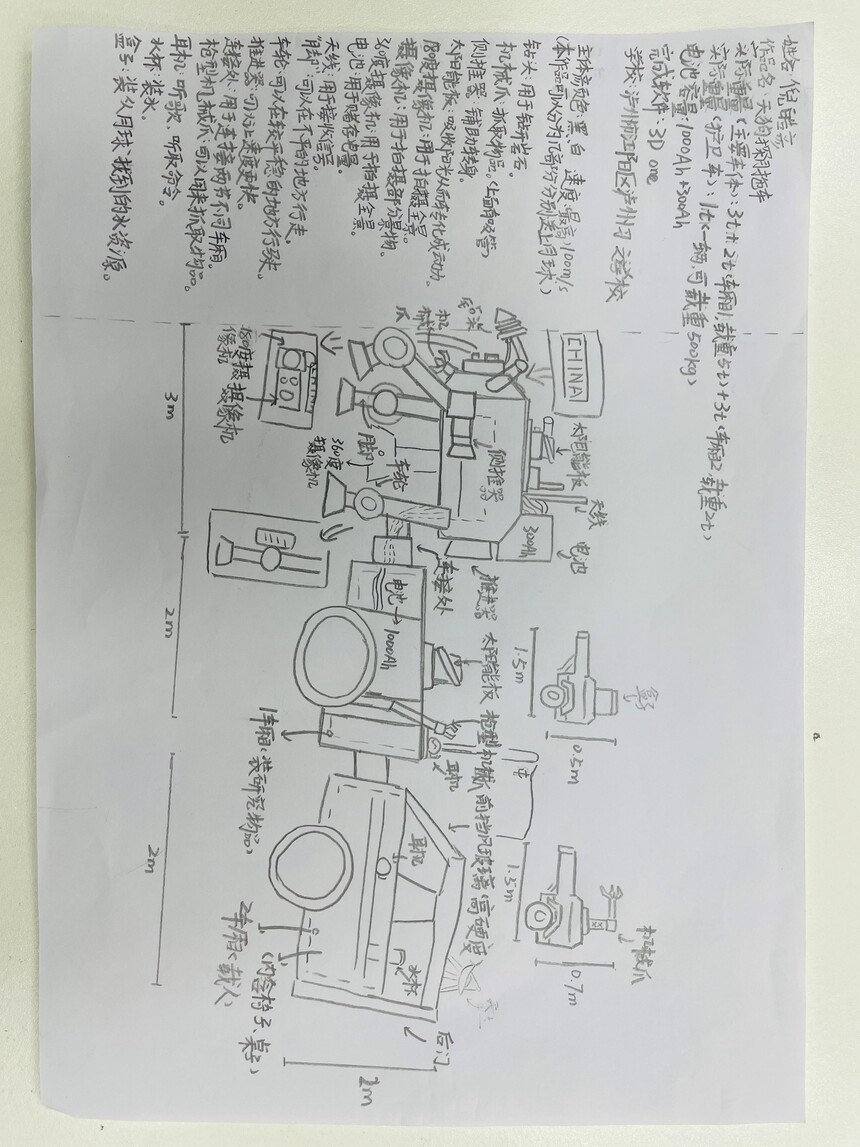 姓名:倪瑞
作品名:天狗探月拖车
实际重量(主要车体):3t+2t(车厢1,载重5t)+3t(车厢2,载重2t)
实际重量(护卫车):1t(一辆,可载重500kg)
电池容量:1000Ah+300Ah
完成软件:3D one
学校:泸州市江阳区泸州
学校
主体颜色:黑、白 速度:最高100m/s
(本作品可以分为几部分分别送上月球)
钻头:用于钻碎岩石。
机械爪:抓取物品。(上面有吸管)
侧推器:辅助转身。
太阳能板:吸收阳光从而转化成动力。
180度摄像机:用于拍摄全景。
摄像机:用于拍摄部分景物。
360度摄像机:用于拍摄全景。
电池:用于储存电量。
天线:用于接收信号。
"脚":可以在不平的地方行走。
车轮:可以在较平稳的地方行驶。
推进器:可以让速度更快。
连接处:用于连接两节不同车厢。
枪型机械爪:可以用来抓取物品。
耳机:听歌、听取命令。
水杯:装水。
盒子:装从月球找到的水资源。
CHINA
钻头
机械爪
太阳能板
天线
电池
300Ah
侧推器
车轮
脚
360度摄像机
180度摄像机
摄像机
推进器
连接处
电池→1000Ah
太阳能板
枪型机械爪
耳机
前挡风玻璃(高硬度)
1车厢(装研究物品)
耳机
水杯
2车厢(载人)
(内含椅子、桌子)
后门
机械爪
1.5m
0.5m
1.5m
0.7m
3m
2m
2m
2m